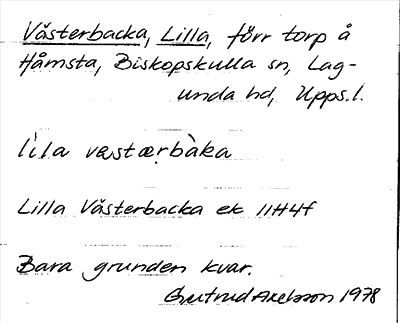 Västerbacka, Lilla, förr torp å
Håmsta, Biskopskulla sn, Lag-
unda hd, Upps.l.
lìla væstærbàka
Lilla Västerbacka ek 11H4f
Bara grunden kvar.
Gertrud Axelsson 1978